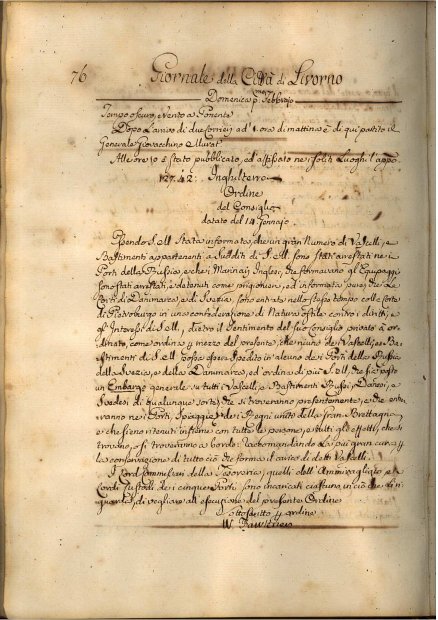 76 Giornale della Città di Livorno
Domenica p.mo Febbrajo
Tempo oscuro, e Vento a Ponente
Dopo l'arrivo di due Corrieri ad 1. ora di mattina è di qui partito il
Generale Giovacchino Murat.
Alle ore 10 è stato pubblicato, ed affissato nei soliti Luoghi l'appo:
127.42. Inghilterra
Ordine
del Consiglio
datato del 14 Gennajo
Essendo S. M. stata informata, che un gran Numero di Vascelli, e
Bastimenti appartenenti a Sudditi di S. M. sono stati arrestati nei
Porti della Russia, e che i Marinari Inglesi, che formavano gl'Equipaggi
sono stati arrestati, e detenuti come prigionieri, ed informata pure, che le
Corti di Danimarca, e di Svezia, sono entrate nello stesso tempo colla Corte
di Pietroburgo in una confederazione di Natura ostile contro i diritti, e
gl'Interessi di S. M., dietro il Sentimento del suo Consiglio privato à or
dinato, come ordina p mezzo del presente, che niuno dei Vascelli, e Ba
stimenti di S. M. possa esser Spedito in alcuno dei Porti della Russia
della Svezia, e della Danimarca, ed ordina di più S. M., che sia posto
un Embargo generale su tutti i Vascelli, e Bastimenti Russi, Danesi, e
Svedesi di qualunque sorte, che si troveranno presentemente, o che entre
ranno nei Porti, Spiaggie dei Regni uniti della Gran Brettagna,
e che sieno ritenuti insieme con tutte le persone, e tutti gl'effetti, che si
trovano, o si troveranno a bordo: Raccomandando la più gran cura p
la conservazione di tutto ciò che forma il carico di detti Vascelli.
I Lord Commissari della Tesoreria, quelli dell'Ammiragliato, e i
Lordi Custodi dei cinque Porti sono incaricati ciascuno in ciò che li ri
guarda, di vegliare all'esecuzione del presente Ordine
sottoscritto p ordine
W. Fawkener